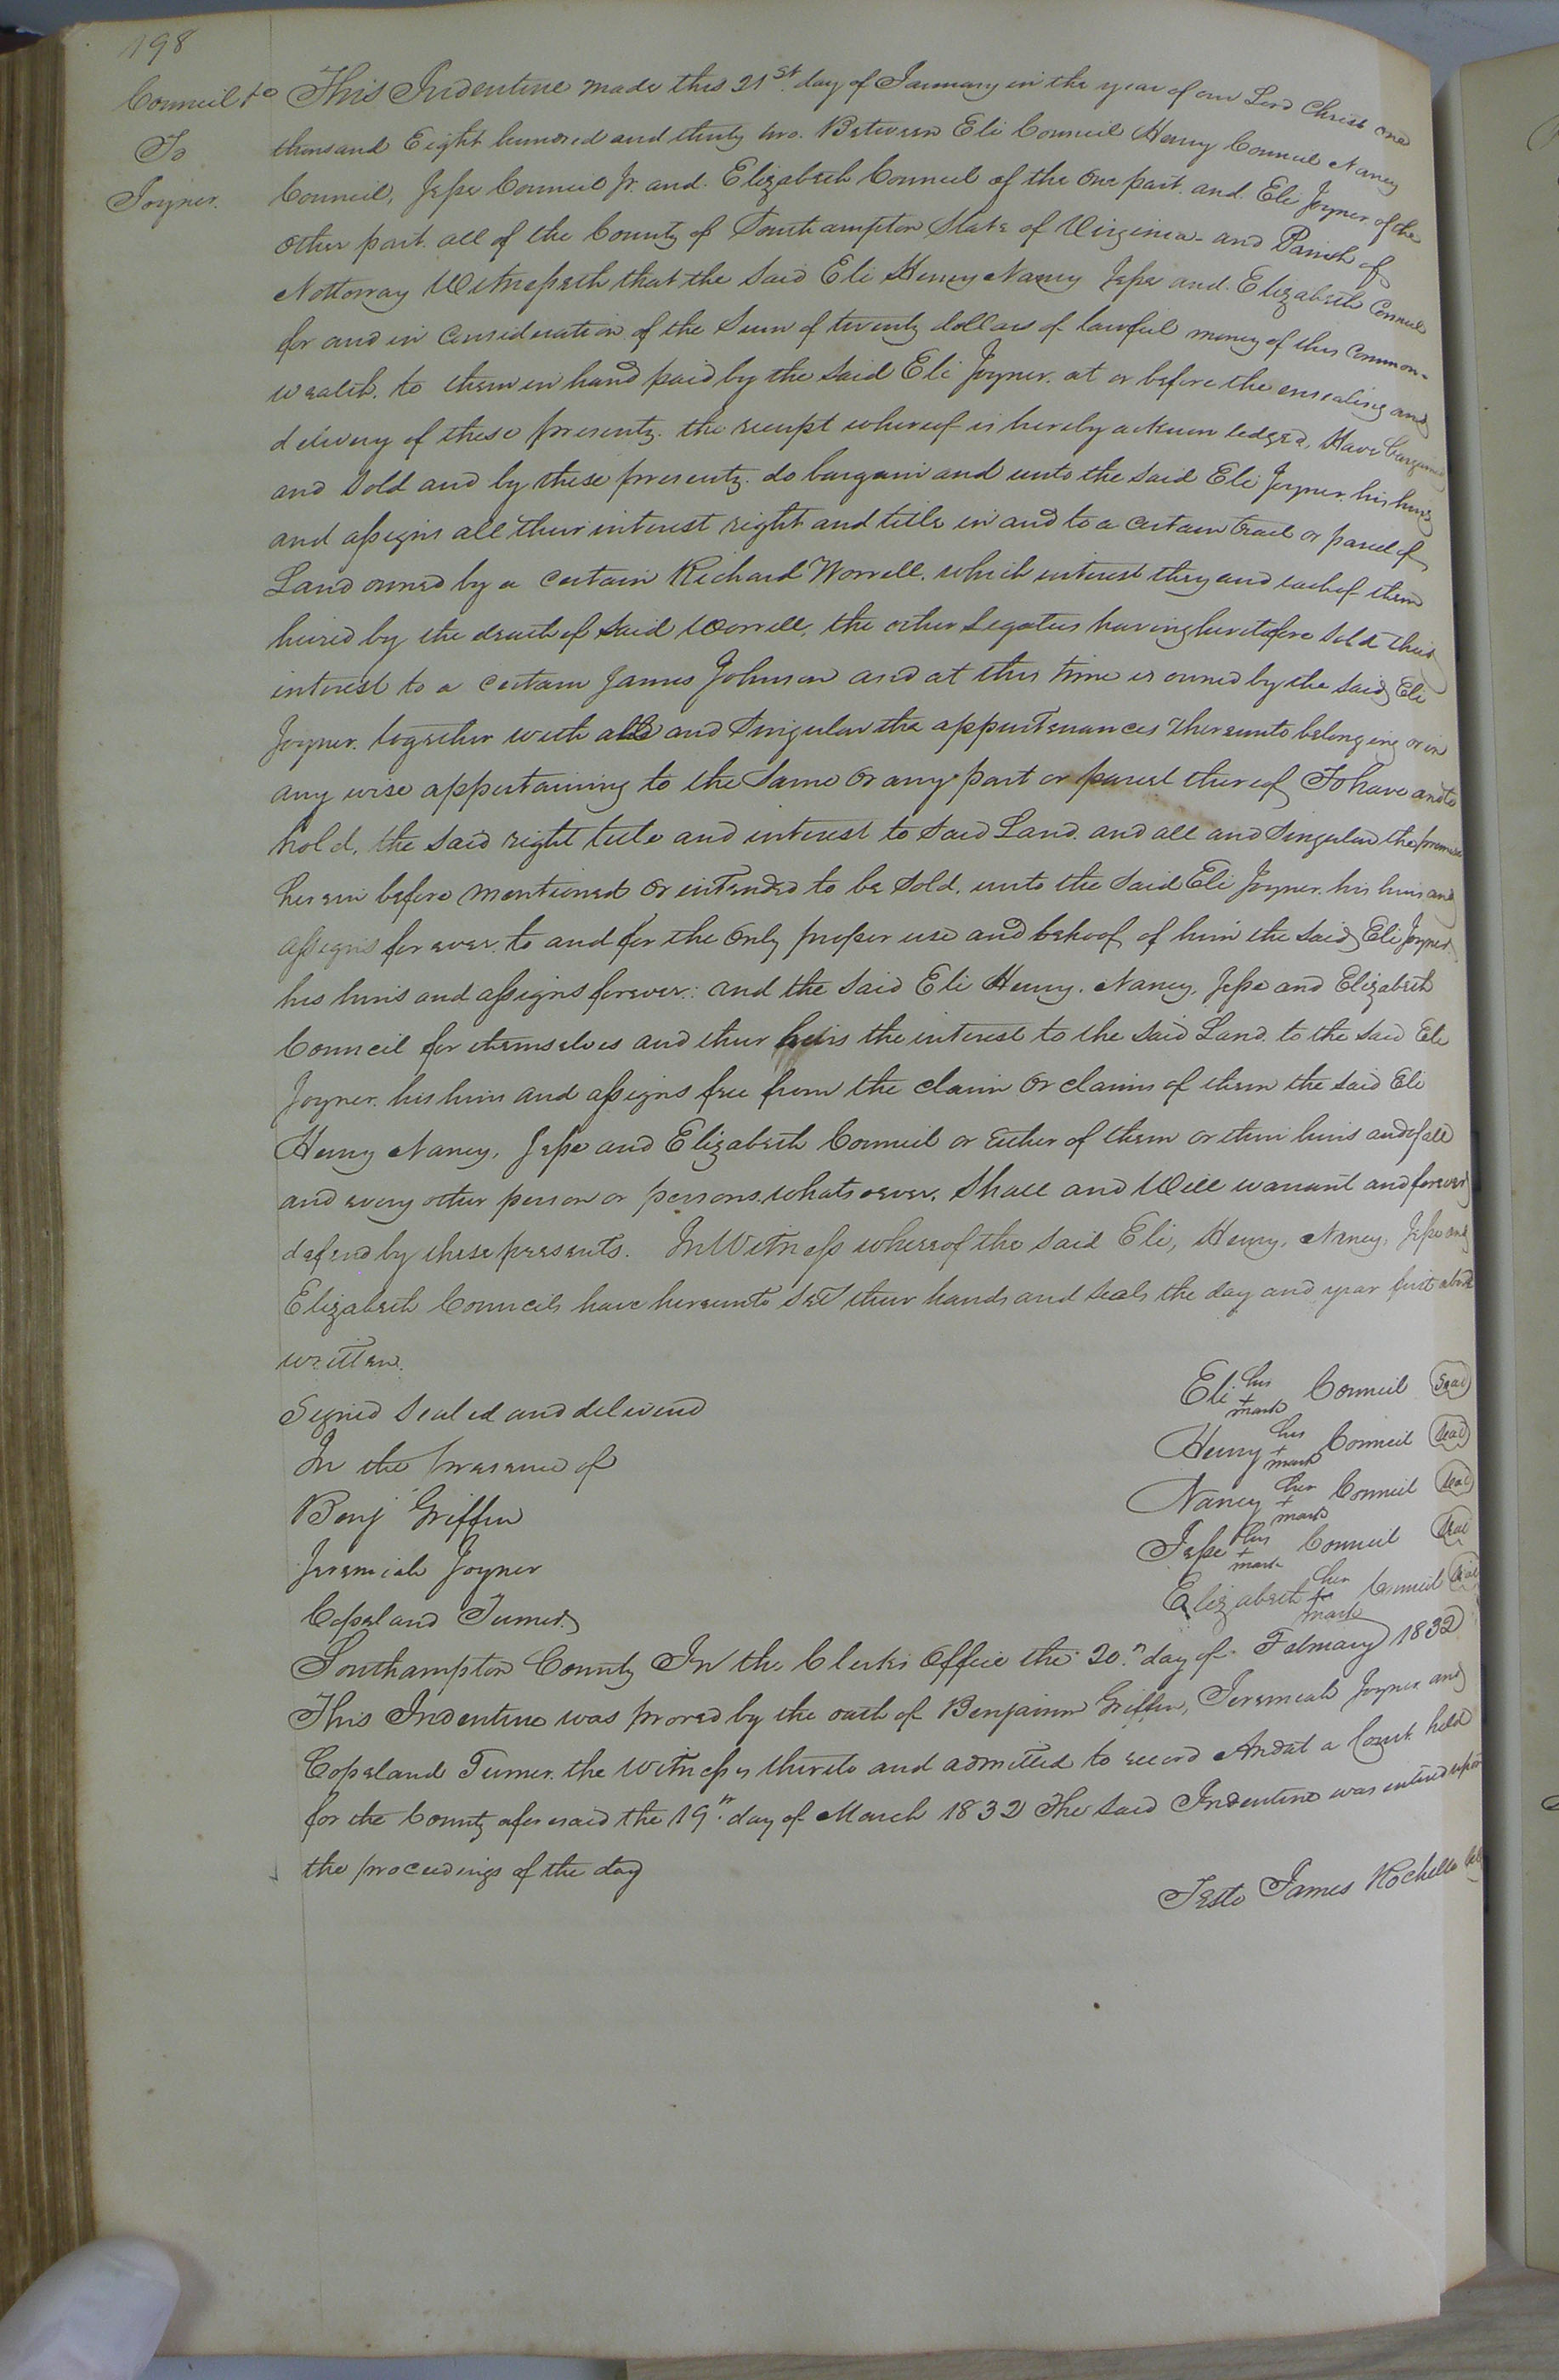 198
Council &c
To
Joyner.
This Indenture made this 21st day of January in the year of our Lord Christ one
thousand Eight hundred and thirty two. Between Eli Council Henry Council Nancy
Council, Jesse Council Jr. and Elizabeth Council of the one part. and Eli Joyner of the
other part. all of the County of Southampton State of Virginia and Parish of
Nottoway Witnesseth that the Said Eli Henry Nancy Jesse and Elizabeth Council
for and in consideration of the Sum of twenty dollars of lawful money of this Common-
wealth. to them in hand paid by the Said Eli Joyner. at or before the ensealing and
delivery of these presents. the receipt whereof is hereby acknowledged, Have bargained
and Sold and by these presents. do bargain and unto the said Eli Joyner. his heirs
and assigns all their interest right and title in and to a certain tract or parcel of
Land owned by a certain Richard Worrell. which interest they and each of them
heired by the death of Said Worrell, the other Legatees having heretofore Sold their
interest to a certain James Johnson and at this time is owned by the said Eli
Joyner. together with all and Singular the appurtenances thereunto belonging or in
any wise appertaining to the Same or any part or parcel thereof To have and to
hold, the said right title and interest to Said Land. and all and Singular the premises
herein before mentioned or intended to be Sold. unto the Said Eli Joyner. his heirs and
assigns forever. to and for the only proper use and behoof of him the said Eli Joyner.
his heirs and assigns forever: and the Said Eli Henry. Nancy, Jesse and Elizabeth
Council for themselves and their heirs the interest to the said Land. to the said Eli
Joyner. his heirs and assigns free from the claim or claims of them the said Eli
Henry Nancy, Jesse and Elizabeth Council or either of them or their heirs and of all
and every other person or persons whatsoever, Shall and Will warrant and forever
defend by these presents. In Witness whereof the Said Eli, Henry, Nancy, Jesse and
Elizabeth Councils have hereunto Set their hands and Seals the day and year first above
written.
Signed Sealed and delivered
In the presence of
Benj Griffin
Jeremiah Joyner
Copeland Turner
Eli his + mark Council Seal
Henry his + mark Council Seal
Nancy her + mark Council Seal
Jesse his + mark Council Seal
Elizabeth her + mark Council Seal
Southampton County In the Clerks Office the 20.th day of February 1832
This Indenture was proved by the oath of Benjamin Griffin, Jeremiah Joyner and
Copeland Turner. the Witnesses thereto and admitted to record And at a Court held
for the County aforesaid the 19th day of March 1832 The said Indenture was entered upon
the proceedings of the day
Teste James Rochelle